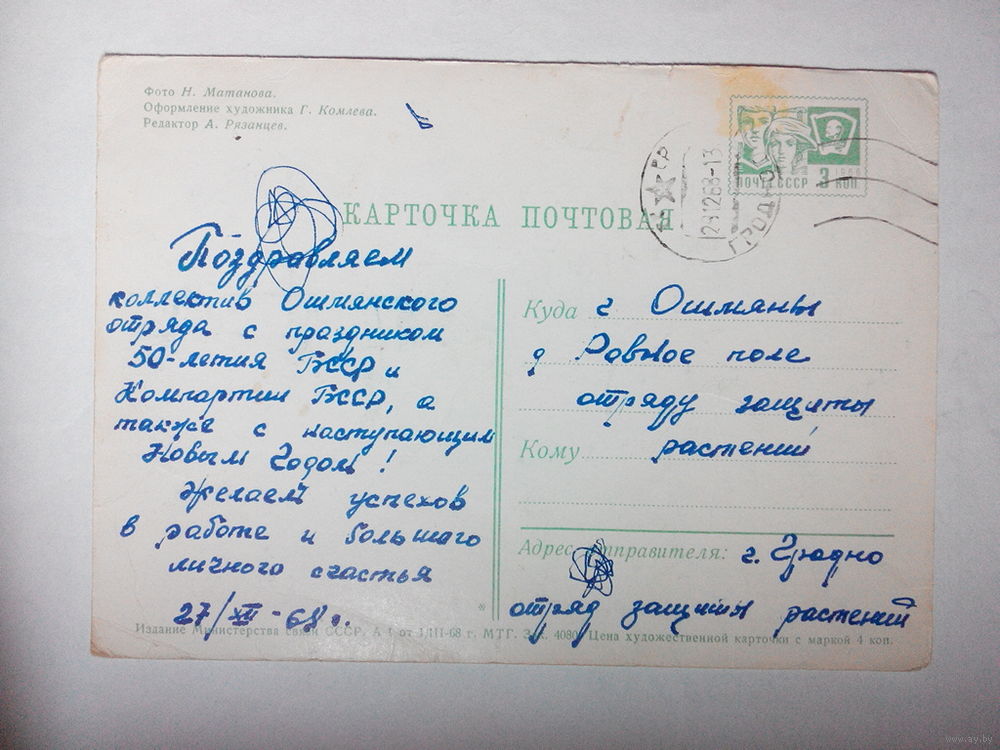 Фото Н. Матанова.
Оформление художника Г. Комлева.
Редактор А. Рязанцев.
ПОЧТА СССР 3 КОП
1966
28 12 68-13
ГРОДНО
КАРТОЧКА ПОЧТОВАЯ
Поздравляем
коллектив Ошмянского
отряда с праздником
50-летия БССР и
Компартии БССР, а
также с наступающим
Новым Годом!
Желаем успехов
в работе и большого
личного счастья
27/XII-68 г.
Куда г Ошмяны
д Ровное поле
отряду защиты
Кому растений
Адрес отправителя: г. Гродно
отряд защиты растений
Издание Министерства связи СССР. А от 1/III-68 г. МТГ. Зак. 4080. Цена художественной карточки с маркой 4 коп.
www.ay.by